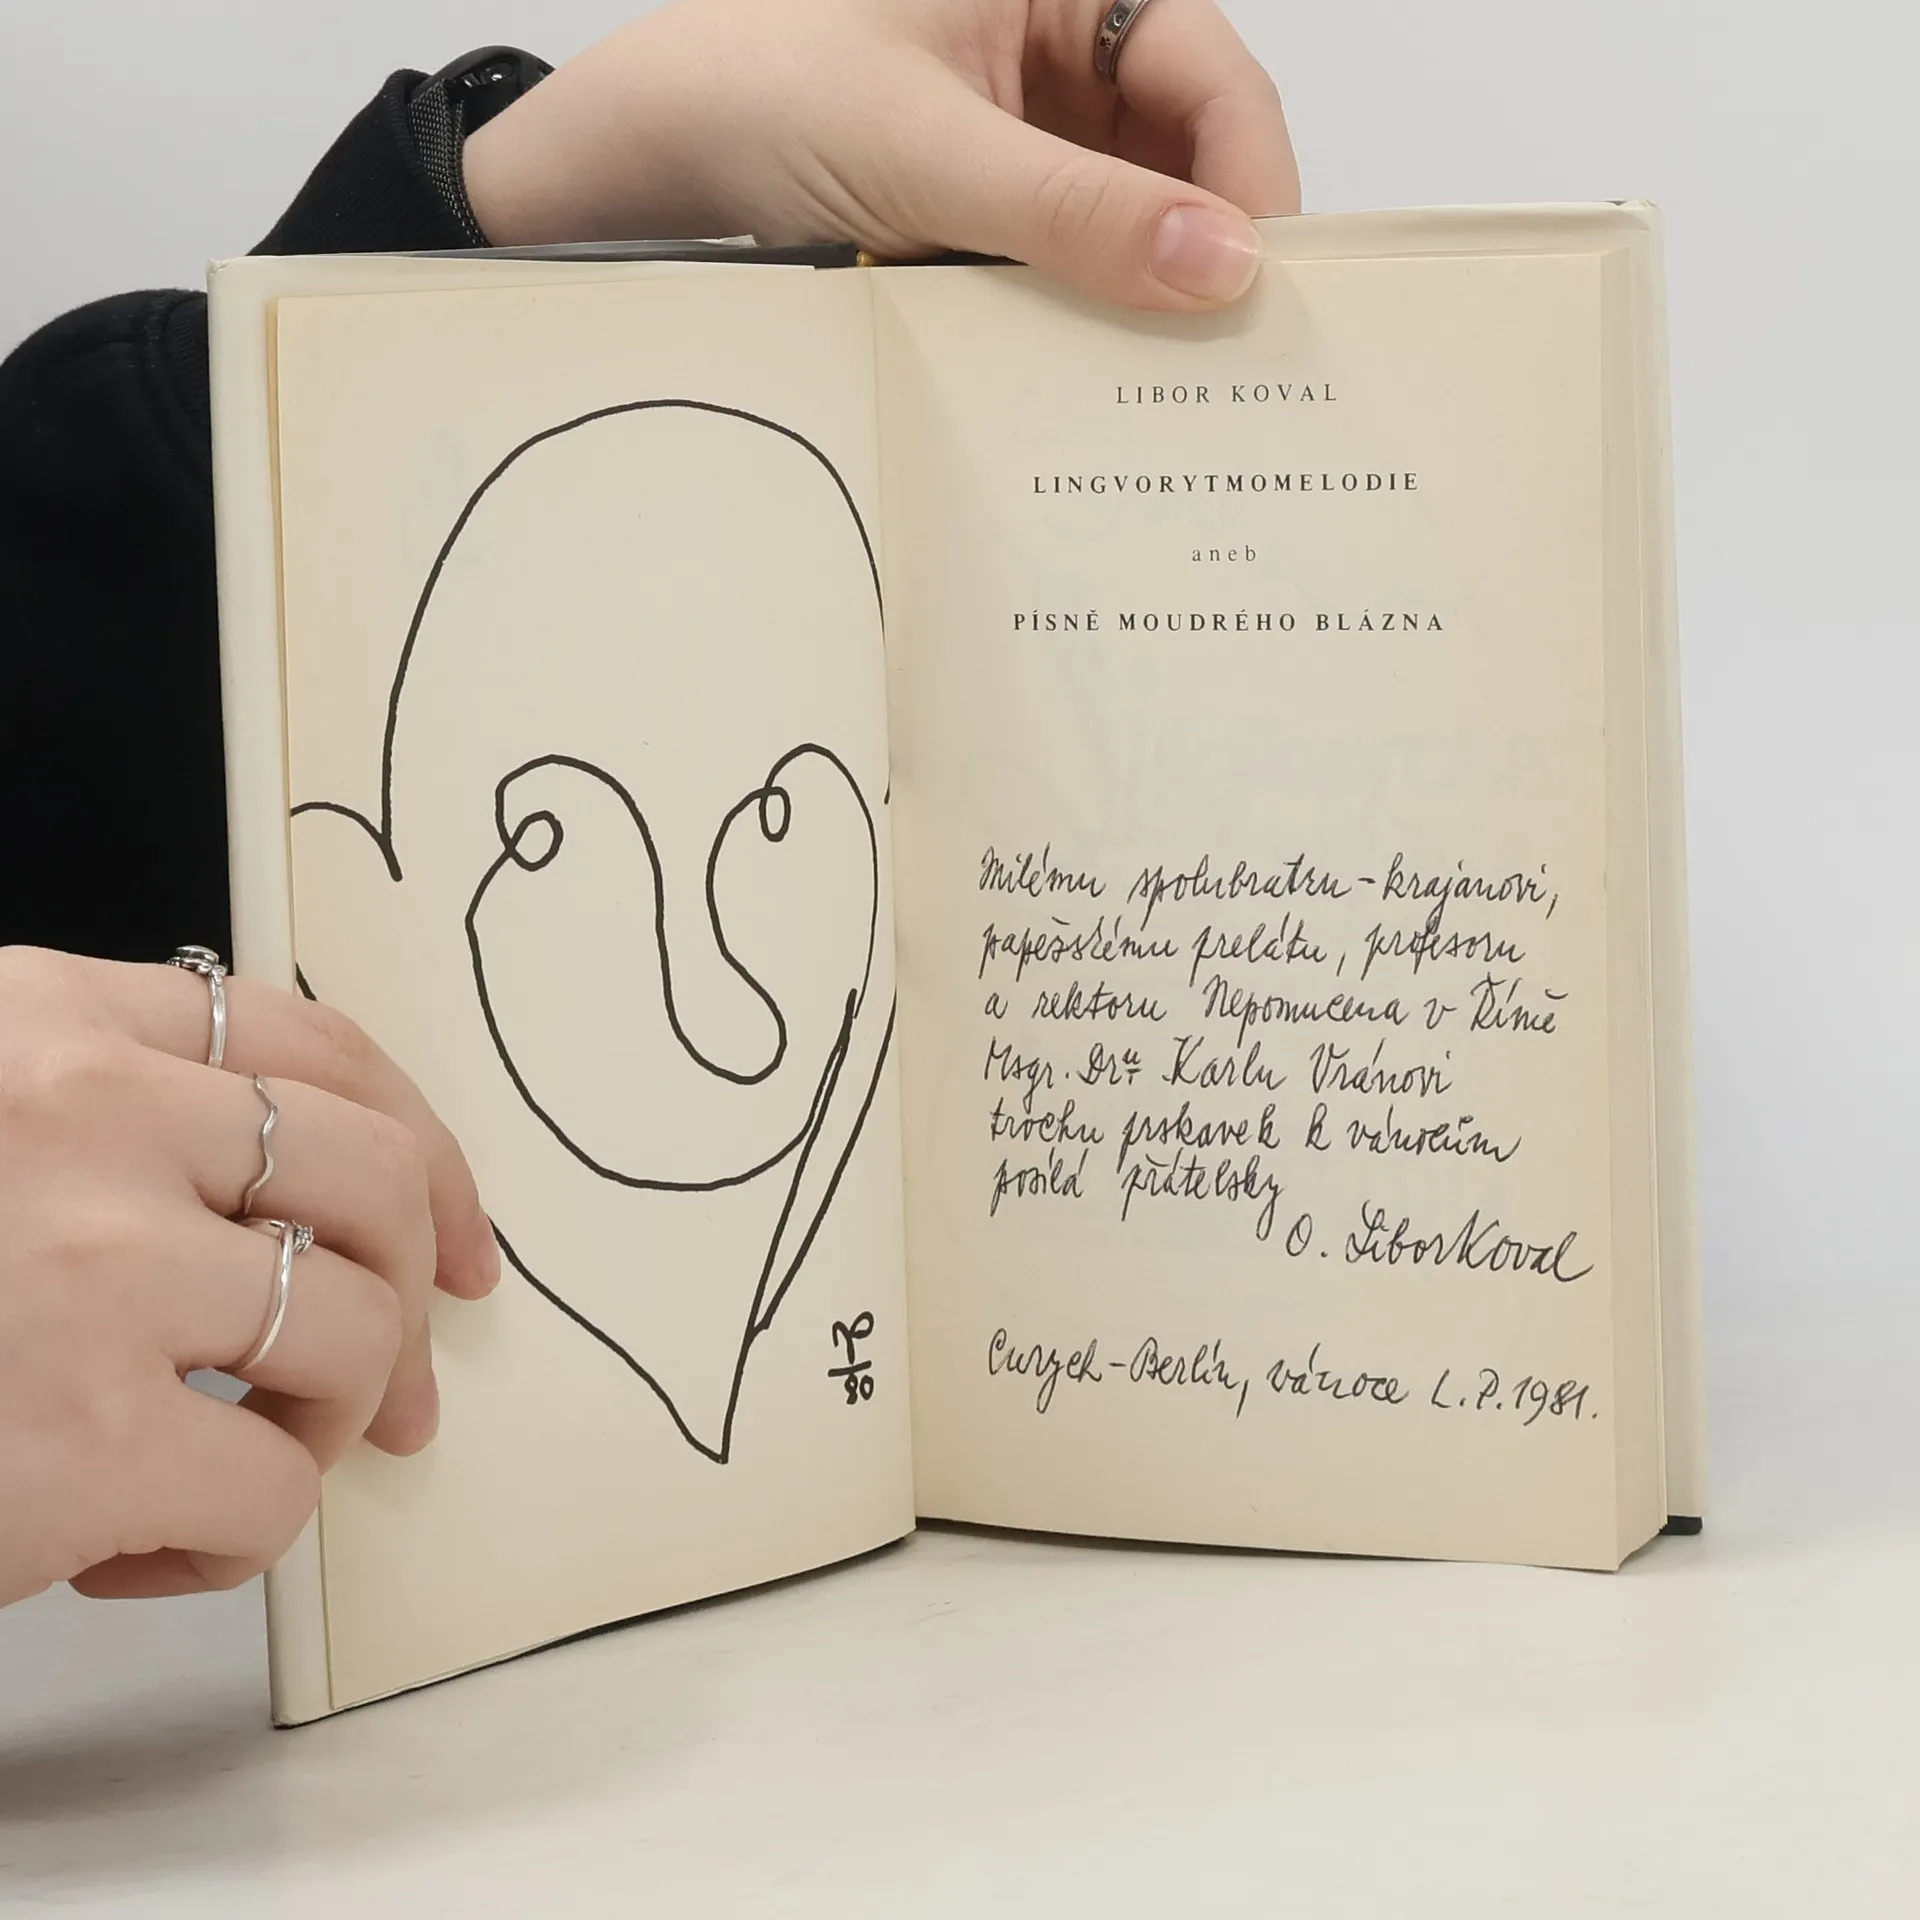 LIBOR KOVAL
LINGVORYTMOMELODIE
aneb
PÍSNĚ MOUDRÉHO BLÁZNA
Milému spolubratru-krajanovi,
papežskému prelátu, profesoru
a rektoru Nepomucena v Římě
Msgr. Dru Karlu Vránovi
trochu prskavek k vánocům
posílá přátelsky
O. Libor Koval
Curych-Berlín, vánoce L.P. 1981.
80